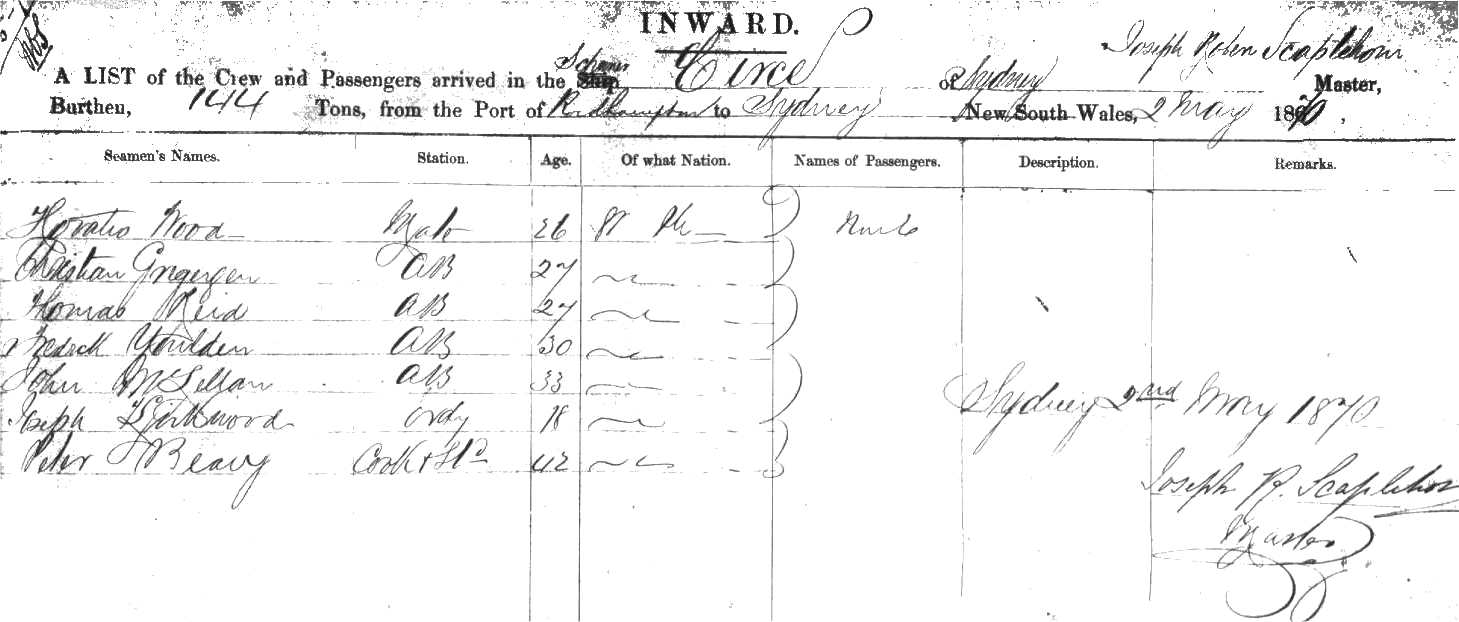 INWARD.
Joseph Scaplehorn
A LIST of the Crew and Passengers arrived in the Ship Circe of Sydney Master,
Burthen, 144 Tons, from the Port of Rockhampton to Sydney New South Wales, 2 May 1870.
Seamen's Names. Station. Age. Of what Nation. Names of Passengers. Description. Remarks.
Horatio Wood Mate 26
Christian Gregergen AB 27
Thomas Reid AB 27
Fredrick Youlden AB 30
John McLellan AB 33
Joseph Kirkwood Ordy 18
Peter Beavy Cook & Std 42
Sydney 2nd May 1870
Joseph R. Scaplehorn
Master